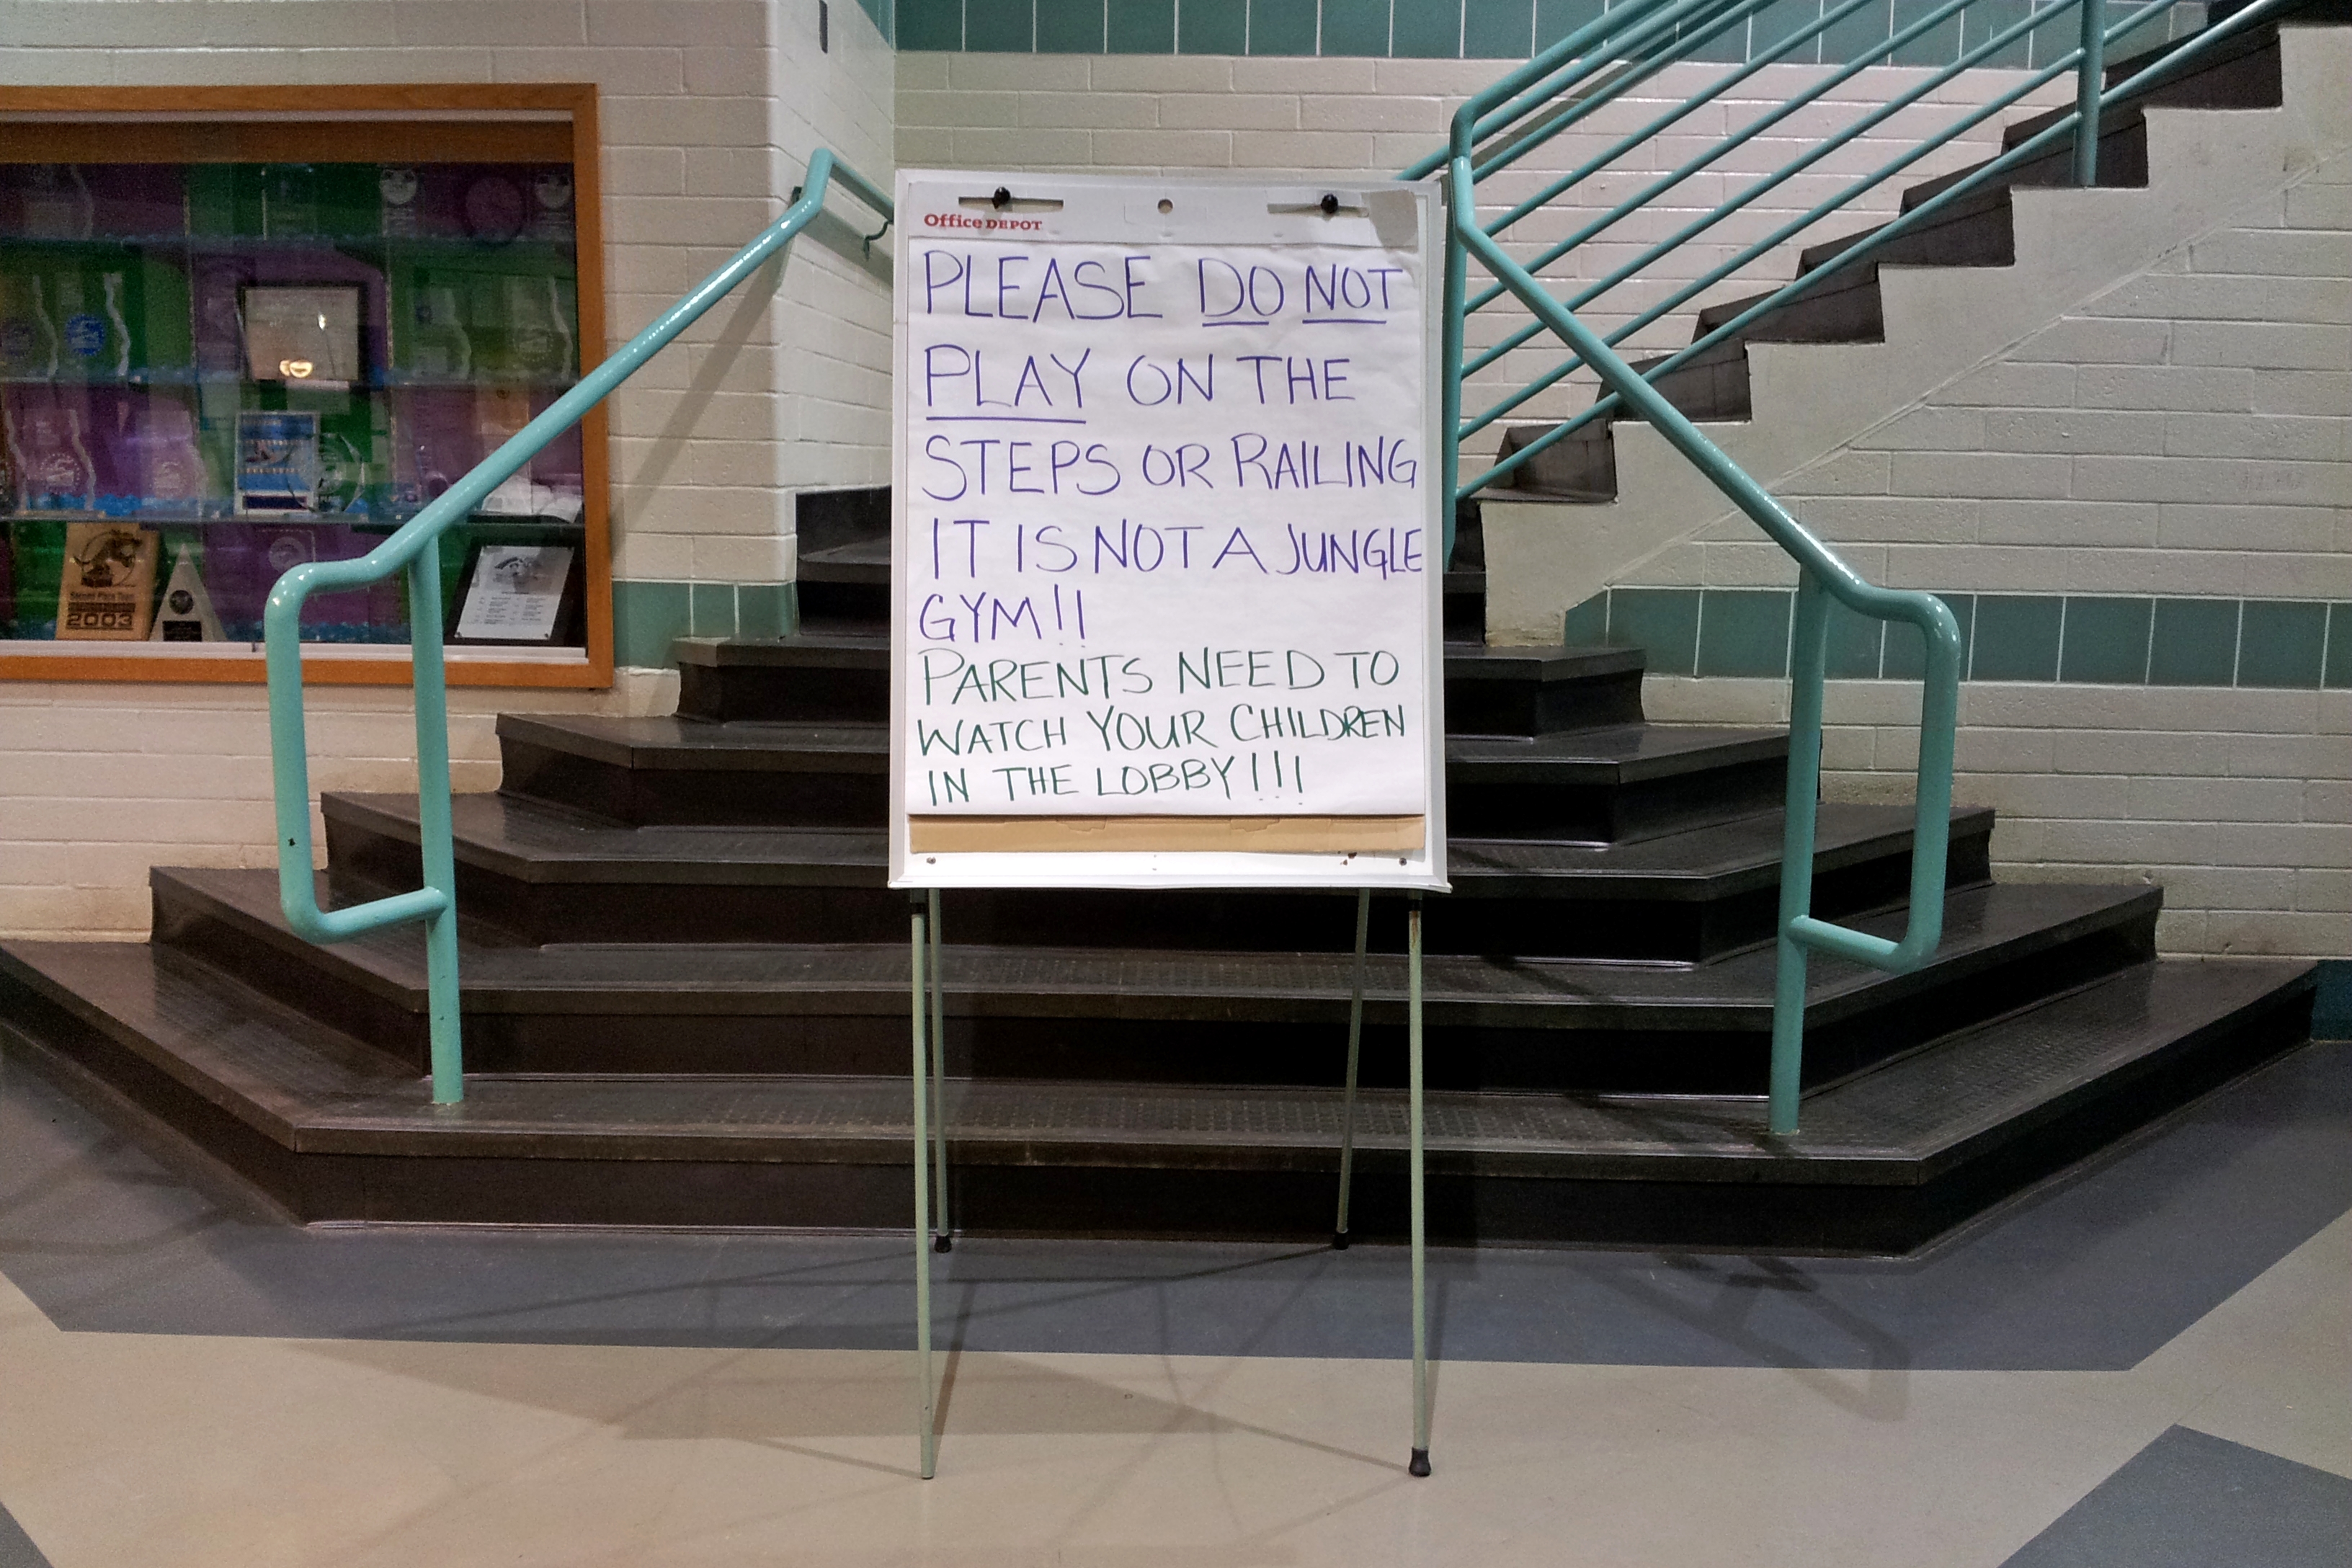 Office DEPOT
PLEASE DO NOT
PLAY ON THE
STEPS OR RAILING
IT IS NOT A JUNGLE
GYM!!
PARENTS NEED TO
WATCH YOUR CHILDREN
IN THE LOBBY!!!
Second Place Team
2003